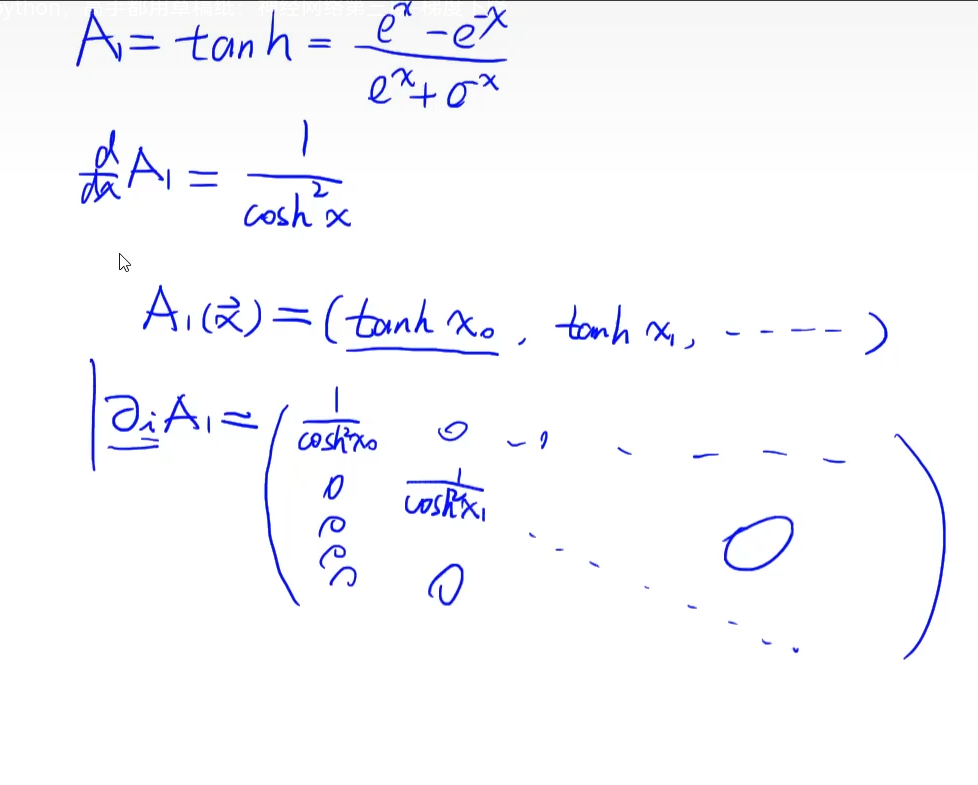 A₁ = tanh = (eˣ - e⁻ˣ) / (eˣ + e⁻ˣ)
d/dx A₁ = 1 / cosh²x
A₁(x⃗) = (tanh x₀, tanh x₁, - - - - )
∂ᵢA₁ = ( 1/cosh²x₀ 0 - , - - - -
0 1/cosh²x₁
0 0
0
0 0 )